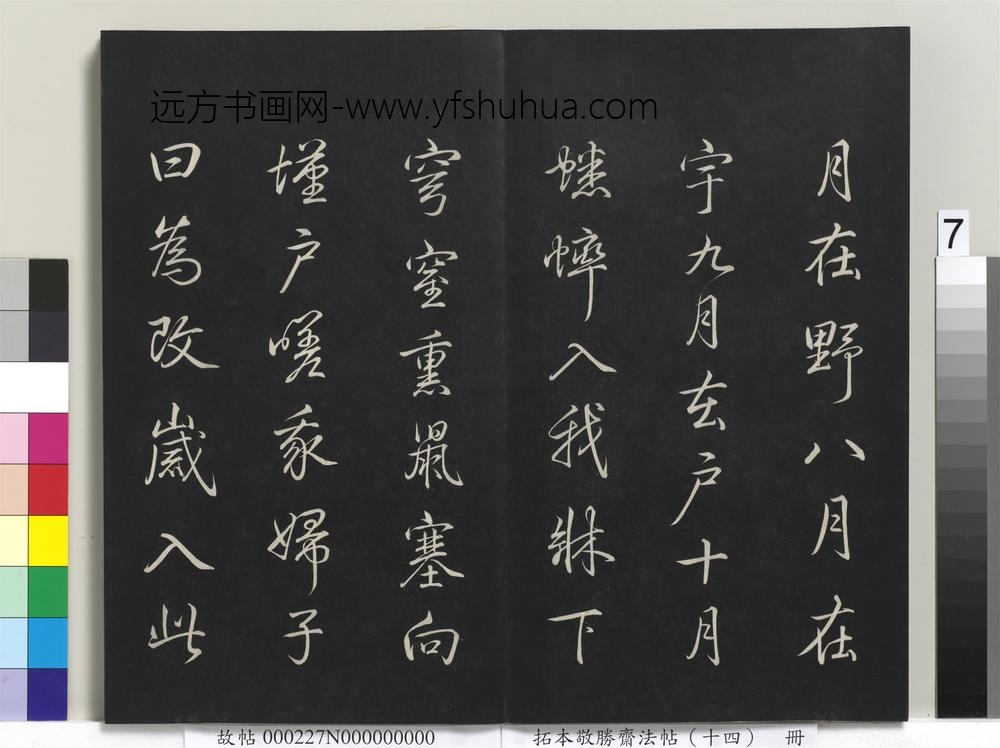 远方书画网-www.yfshuhua.com
月在野八月在
宇九月在户十月
蟋蟀入我牀下
穹窒熏鼠塞向
墐户嗟我婦子
曰為改歲入此
7
故帖 000227N000000000
拓本敬勝齋法帖（十四） 冊